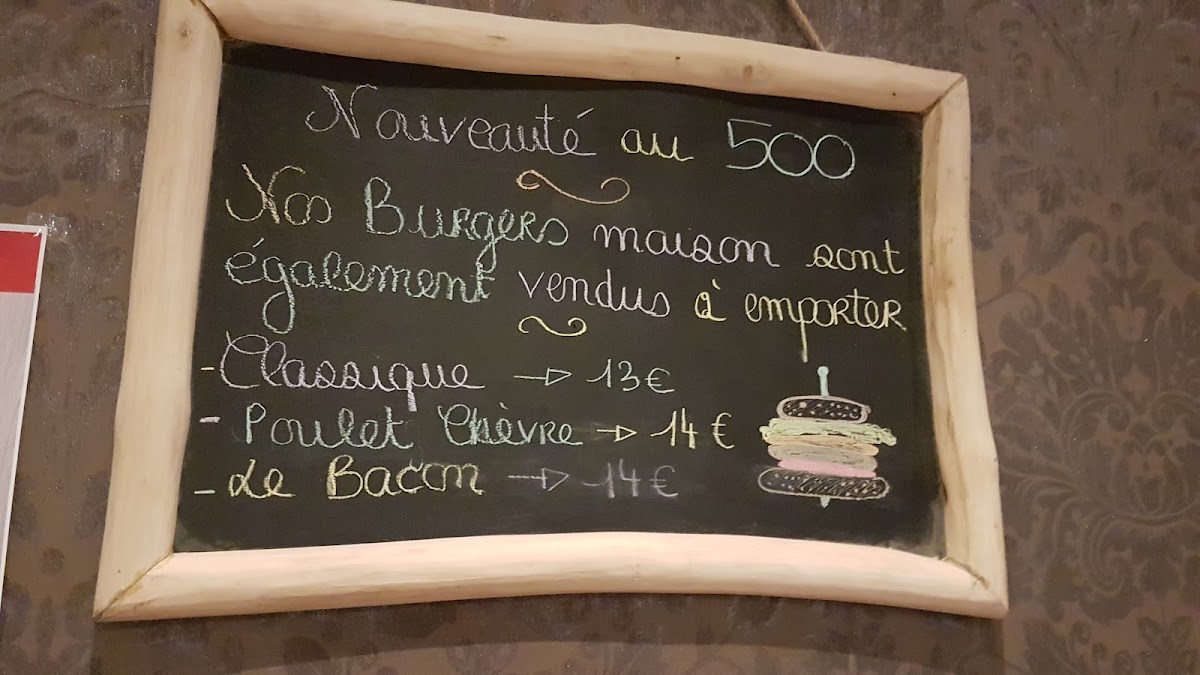 Nouveauté au 500
Nos Burgers maison sont
également vendus à emporter
- Classique → 13€
- Poulet Chèvre → 14€
- Le Bacon → 14€